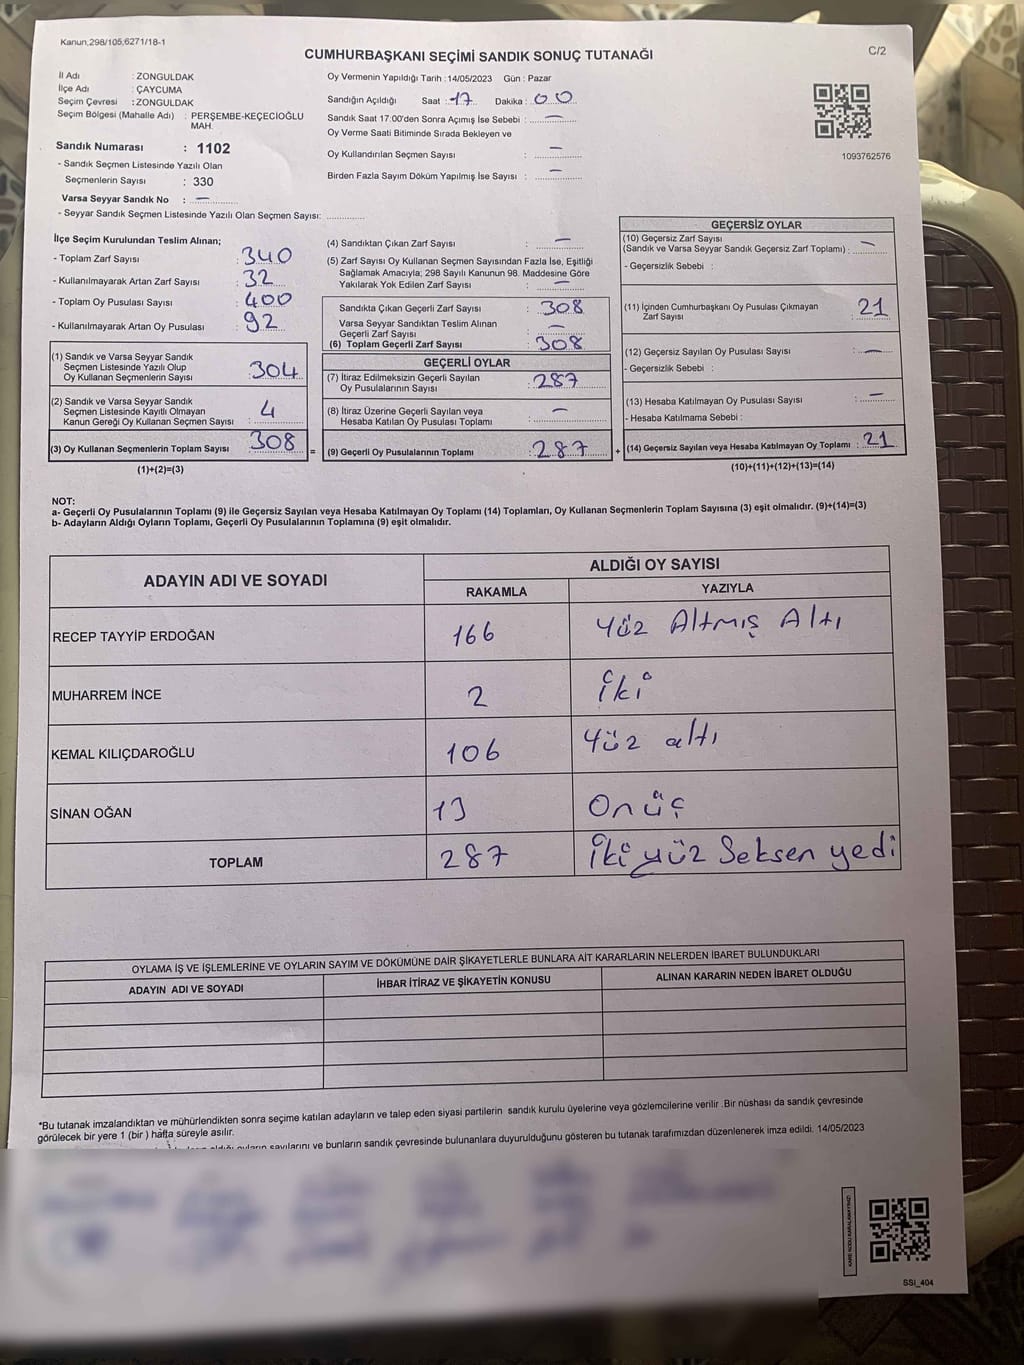 Kanun,298/105,6271/18-1
CUMHURBAŞKANI SEÇİMİ SANDIK SONUÇ TUTANAĞI
C/2
İl Adı : ZONGULDAK
İlçe Adı : ÇAYCUMA
Seçim Çevresi : ZONGULDAK
Seçim Bölgesi (Mahalle Adı) : PERŞEMBE-KEÇECİOĞLU
MAH.
Sandık Numarası : 1102
- Sandık Seçmen Listesinde Yazılı Olan
Seçmenlerin Sayısı : 330
Varsa Seyyar Sandık No : —
- Seyyar Sandık Seçmen Listesinde Yazılı Olan Seçmen Sayısı: ..............
Oy Vermenin Yapıldığı Tarih : 14/05/2023 Gün : Pazar
Sandığın Açıldığı Saat : 17 Dakika : 00
Sandık Saat 17:00'den Sonra Açımış İse Sebebi : —
Oy Verme Saati Bitiminde Sırada Bekleyen ve
Oy Kullandırılan Seçmen Sayısı : —
Birden Fazla Sayım Döküm Yapılmış İse Sayısı : —
1093762576
İlçe Seçim Kurulundan Teslim Alınan;
- Toplam Zarf Sayısı : 340
- Kullanılmayarak Artan Zarf Sayısı : 32
- Toplam Oy Pusulası Sayısı : 400
- Kullanılmayarak Artan Oy Pusulası : 92
(1) Sandık ve Varsa Seyyar Sandık
Seçmen Listesinde Yazılı Olup
Oy Kullanan Seçmenlerin Sayısı : 304
(2) Sandık ve Varsa Seyyar Sandık
Seçmen Listesinde Kayıtlı Olmayan
Kanun Gereği Oy Kullanan Seçmen Sayısı : 4
(3) Oy Kullanan Seçmenlerin Toplam Sayısı : 308
(1)+(2)=(3)
(4) Sandıktan Çıkan Zarf Sayısı : —
(5) Zarf Sayısı Oy Kullanan Seçmen Sayısından Fazla İse, Eşitliği
Sağlamak Amacıyla; 298 Sayılı Kanunun 98. Maddesine Göre
Yakılarak Yok Edilen Zarf Sayısı : —
Sandıkta Çıkan Geçerli Zarf Sayısı : 308
Varsa Seyyar Sandıktan Teslim Alınan
Geçerli Zarf Sayısı : —
(6) Toplam Geçerli Zarf Sayısı : 308
GEÇERLİ OYLAR
(7) İtiraz Edilmeksizin Geçerli Sayılan
Oy Pusulalarının Sayısı : 287
(8) İtiraz Üzerine Geçerli Sayılan veya
Hesaba Katılan Oy Pusulası Toplamı : —
= (9) Geçerli Oy Pusulalarının Toplamı : 287
GEÇERSİZ OYLAR
(10) Geçersiz Zarf Sayısı
(Sandık ve Varsa Seyyar Sandık Geçersiz Zarf Toplamı) : —
- Geçersizlik Sebebi :
(11) İçinden Cumhurbaşkanı Oy Pusulası Çıkmayan
Zarf Sayısı : 21
(12) Geçersiz Sayılan Oy Pusulası Sayısı : —
- Geçersizlik Sebebi :
(13) Hesaba Katılmayan Oy Pusulası Sayısı : —
- Hesaba Katılmama Sebebi :
+ (14) Geçersiz Sayılan veya Hesaba Katılmayan Oy Toplamı : 21
(10)+(11)+(12)+(13)=(14)
NOT:
a- Geçerli Oy Pusulalarının Toplamı (9) ile Geçersiz Sayılan veya Hesaba Katılmayan Oy Toplamı (14) Toplamları, Oy Kullanan Seçmenlerin Toplam Sayısına (3) eşit olmalıdır. (9)+(14)=(3)
b- Adayların Aldığı Oyların Toplamı, Geçerli Oy Pusulalarının Toplamına (9) eşit olmalıdır.
ADAYIN ADI VE SOYADI
ALDIĞI OY SAYISI
RAKAMLA YAZIYLA
RECEP TAYYİP ERDOĞAN 166 Yüz Altmış Altı
MUHARREM İNCE 2 İki
KEMAL KILIÇDAROĞLU 106 Yüz altı
SİNAN OĞAN 13 Onüç
TOPLAM 287 İki yüz Seksen yedi
OYLAMA İŞ VE İŞLEMLERİNE VE OYLARIN SAYIM VE DÖKÜMÜNE DAİR ŞİKAYETLERLE BUNLARA AİT KARARLARIN NELERDEN İBARET BULUNDUKLARI
ADAYIN ADI VE SOYADI İHBAR İTİRAZ VE ŞİKAYETİN KONUSU ALINAN KARARIN NEDEN İBARET OLDUĞU
*Bu tutanak imzalandıktan ve mühürlendikten sonra seçime katılan adayların ve talep eden siyasi partilerin sandık kurulu üyelerine veya gözlemcilerine verilir .Bir nüshası da sandık çevresinde
görülecek bir yere 1 (bir ) hafta süreyle asılır.
sayılarını ve bunların sandık çevresinde bulunanlara duyurulduğunu gösteren bu tutanak tarafımızdan düzenlenerek imza edildi. 14/05/2023
SSI_404